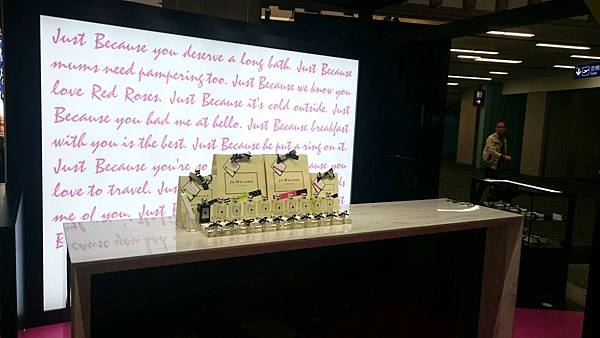 Just Because you deserve a long bath. Just Because
mums need pampering too. Just Because we know you
love Red Roses. Just Because it's cold outside. Just
Because you had me at hello. Just Because breakfast
with you is the best. Just Because he put a ring on it.
Just Because you're so because you
love to travel. Just
me of you. Just B
JO MALONE
JO MALONE